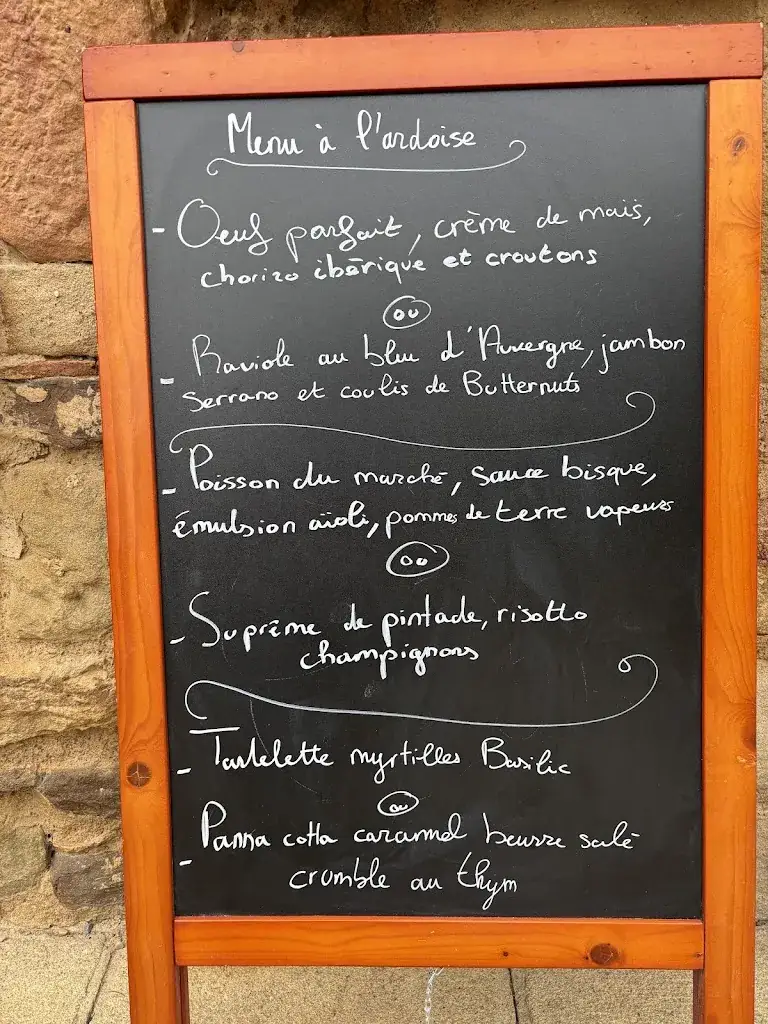 Menu à l'ardoise
- Oeuf parfait, crème de maïs,
chorizo ibérique et croutons
ou
- Raviole au bleu d'Auvergne, jambon
Serrano et coulis de Butternuts
- Poisson du marché, sauce bisque,
émulsion aïoli, pommes de terre vapeurs
ou
- Suprême de pintade, risotto
champignons
- Tartelette myrtilles Basilic
ou
- Panna cotta caramel beurre salé
crumble au thym